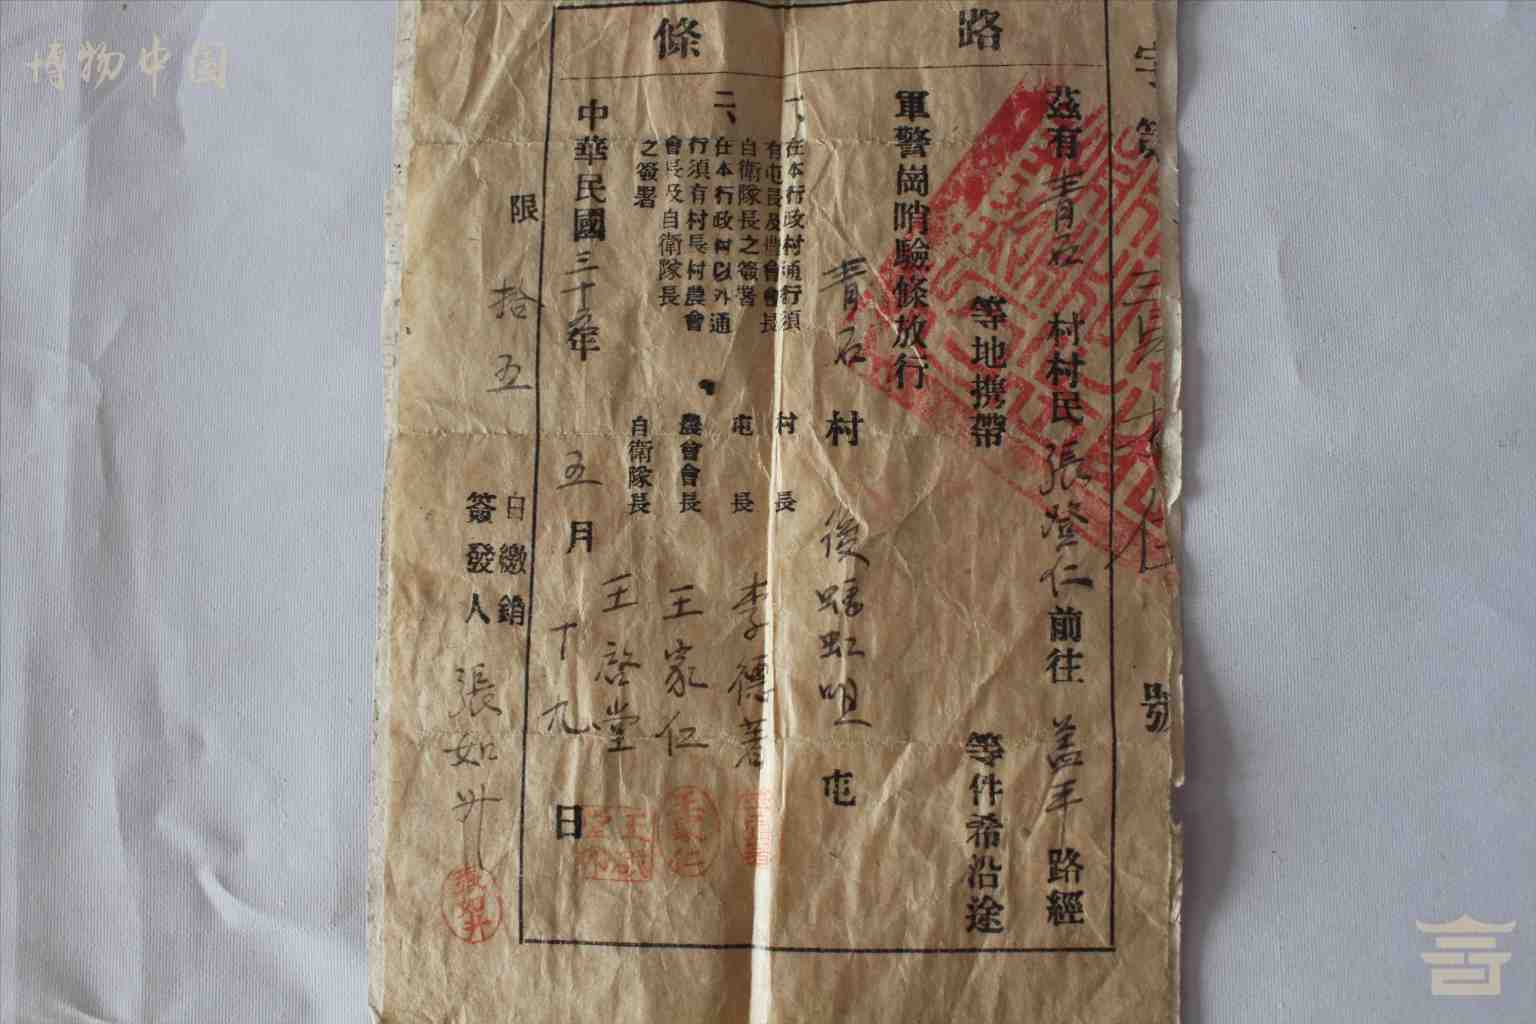 博物中国
路條
字第 號
茲有青石村村民張登仁前往蓋平路經
等地携帶 等件希沿途
軍警崗哨驗條放行
青石村 後 虹咀屯
一、在本行政村通行須
有屯長及農會會長
自衛隊長之簽署
二、在本行政村以外通
行須有村長村農會
會長及自衛隊長
之簽署
村長
屯長 李德
農會會長 王家仁
自衛隊長 王啓堂
中華民國三十五年五月十九日
限拾五日繳銷
簽發人 張如升